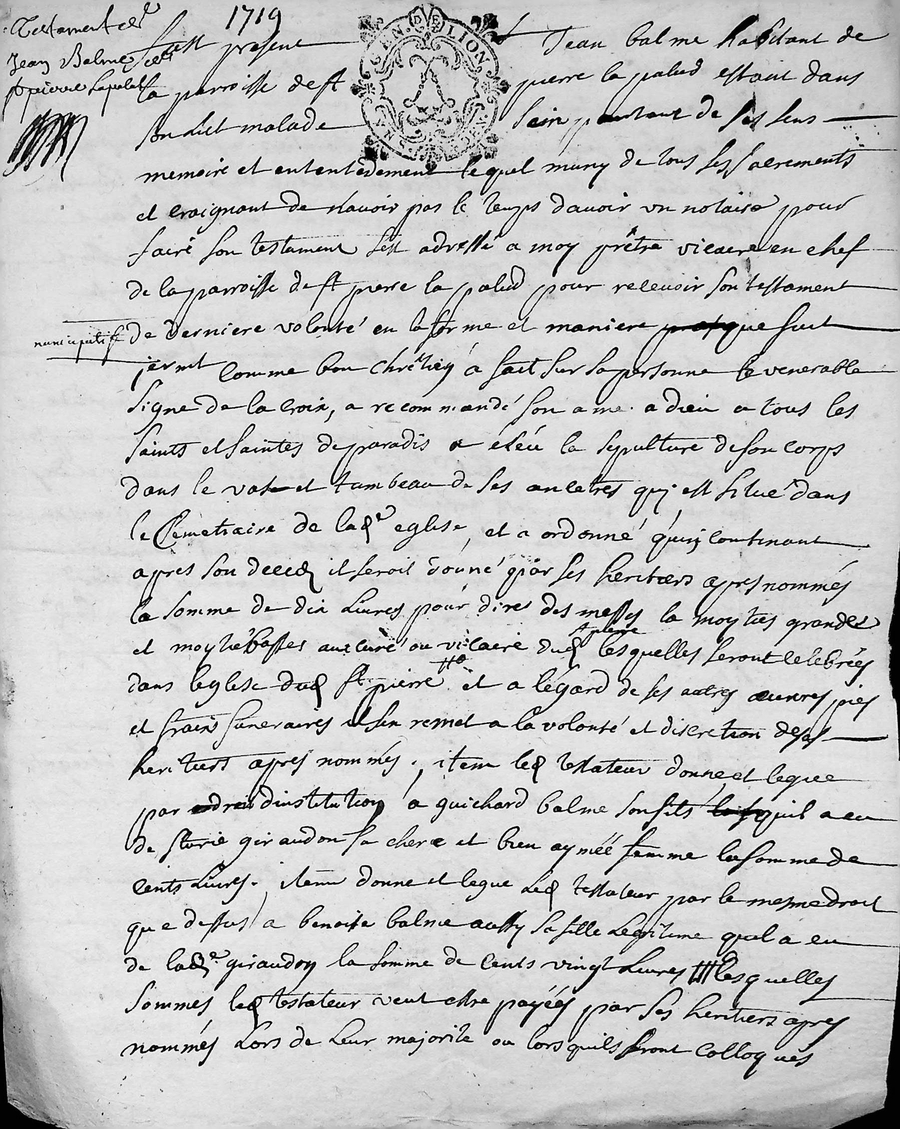 1719
Testament de
Jean Balme
st pierre Lapalud
s'est present Jean balme habitant de
la parroisse de st pierre la palud estant dans
son lict malade sein pourtant de ses sens
memoire et entendement lequel muny de tous ses sacrements
et craignant de n'avoir pas le temps d'avoir un notaire pour
faire son testament s'est adressé a moy prêtre vicaire en chef
de la parroisse de st pierre la palud pour recevoir son testament
nuncupatif
de derniere volonté en la forme et maniere que suit
comme bon chrêtien a fait sur sa personne le venerable
signe de la croix, a recommandé son ame a dieu a tous les
saints et saintes de paradis a éleu la sepulture de son corps
dans le vas et tumbeau de ses ancetres qui est situé dans
le Cemetiaire de lad. eglise, et a ordonné qu'incontinant
apres son deced il seroit donné par ses heritiers apres nommés
la somme de dix Livres pour dire des messes la moytiés grandes
et moytié basses aux curé ou vicaire dud st pierre lesquelles seront celebrées
dans l'eglise dud st pierre et a l'égard de ses autres œuvres pies
et fraix funeraires il s'en remet a la volonté et discretion de ses
heritiers apres nommés, item led testateur donne et legue
par droit d'institution a guichard balme son fils quil a eu
de giraudon sa chere et bien aymée femme la somme de
Cents Livres, item donne et legue Led testateur par le mesme droit
que dessus a benoite balme aussy sa fille Legitime quil a eu
de lad. giraudon la somme de cents vingt Livres lesquelles
sommes led testateur veut estre payées par ses heritiers apres
nommés Lors de Leur majorité ou lorsquils seront colloqués
GEN DE LION